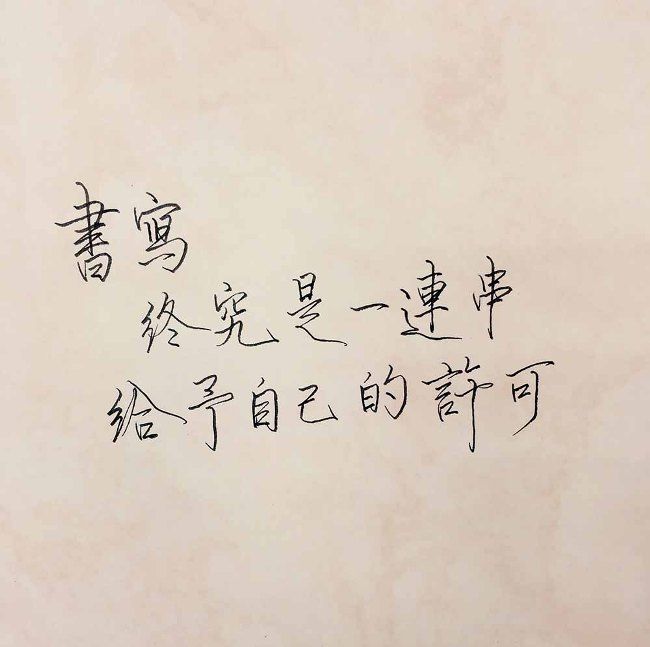 書寫
終究是一連串
給予自己的許可